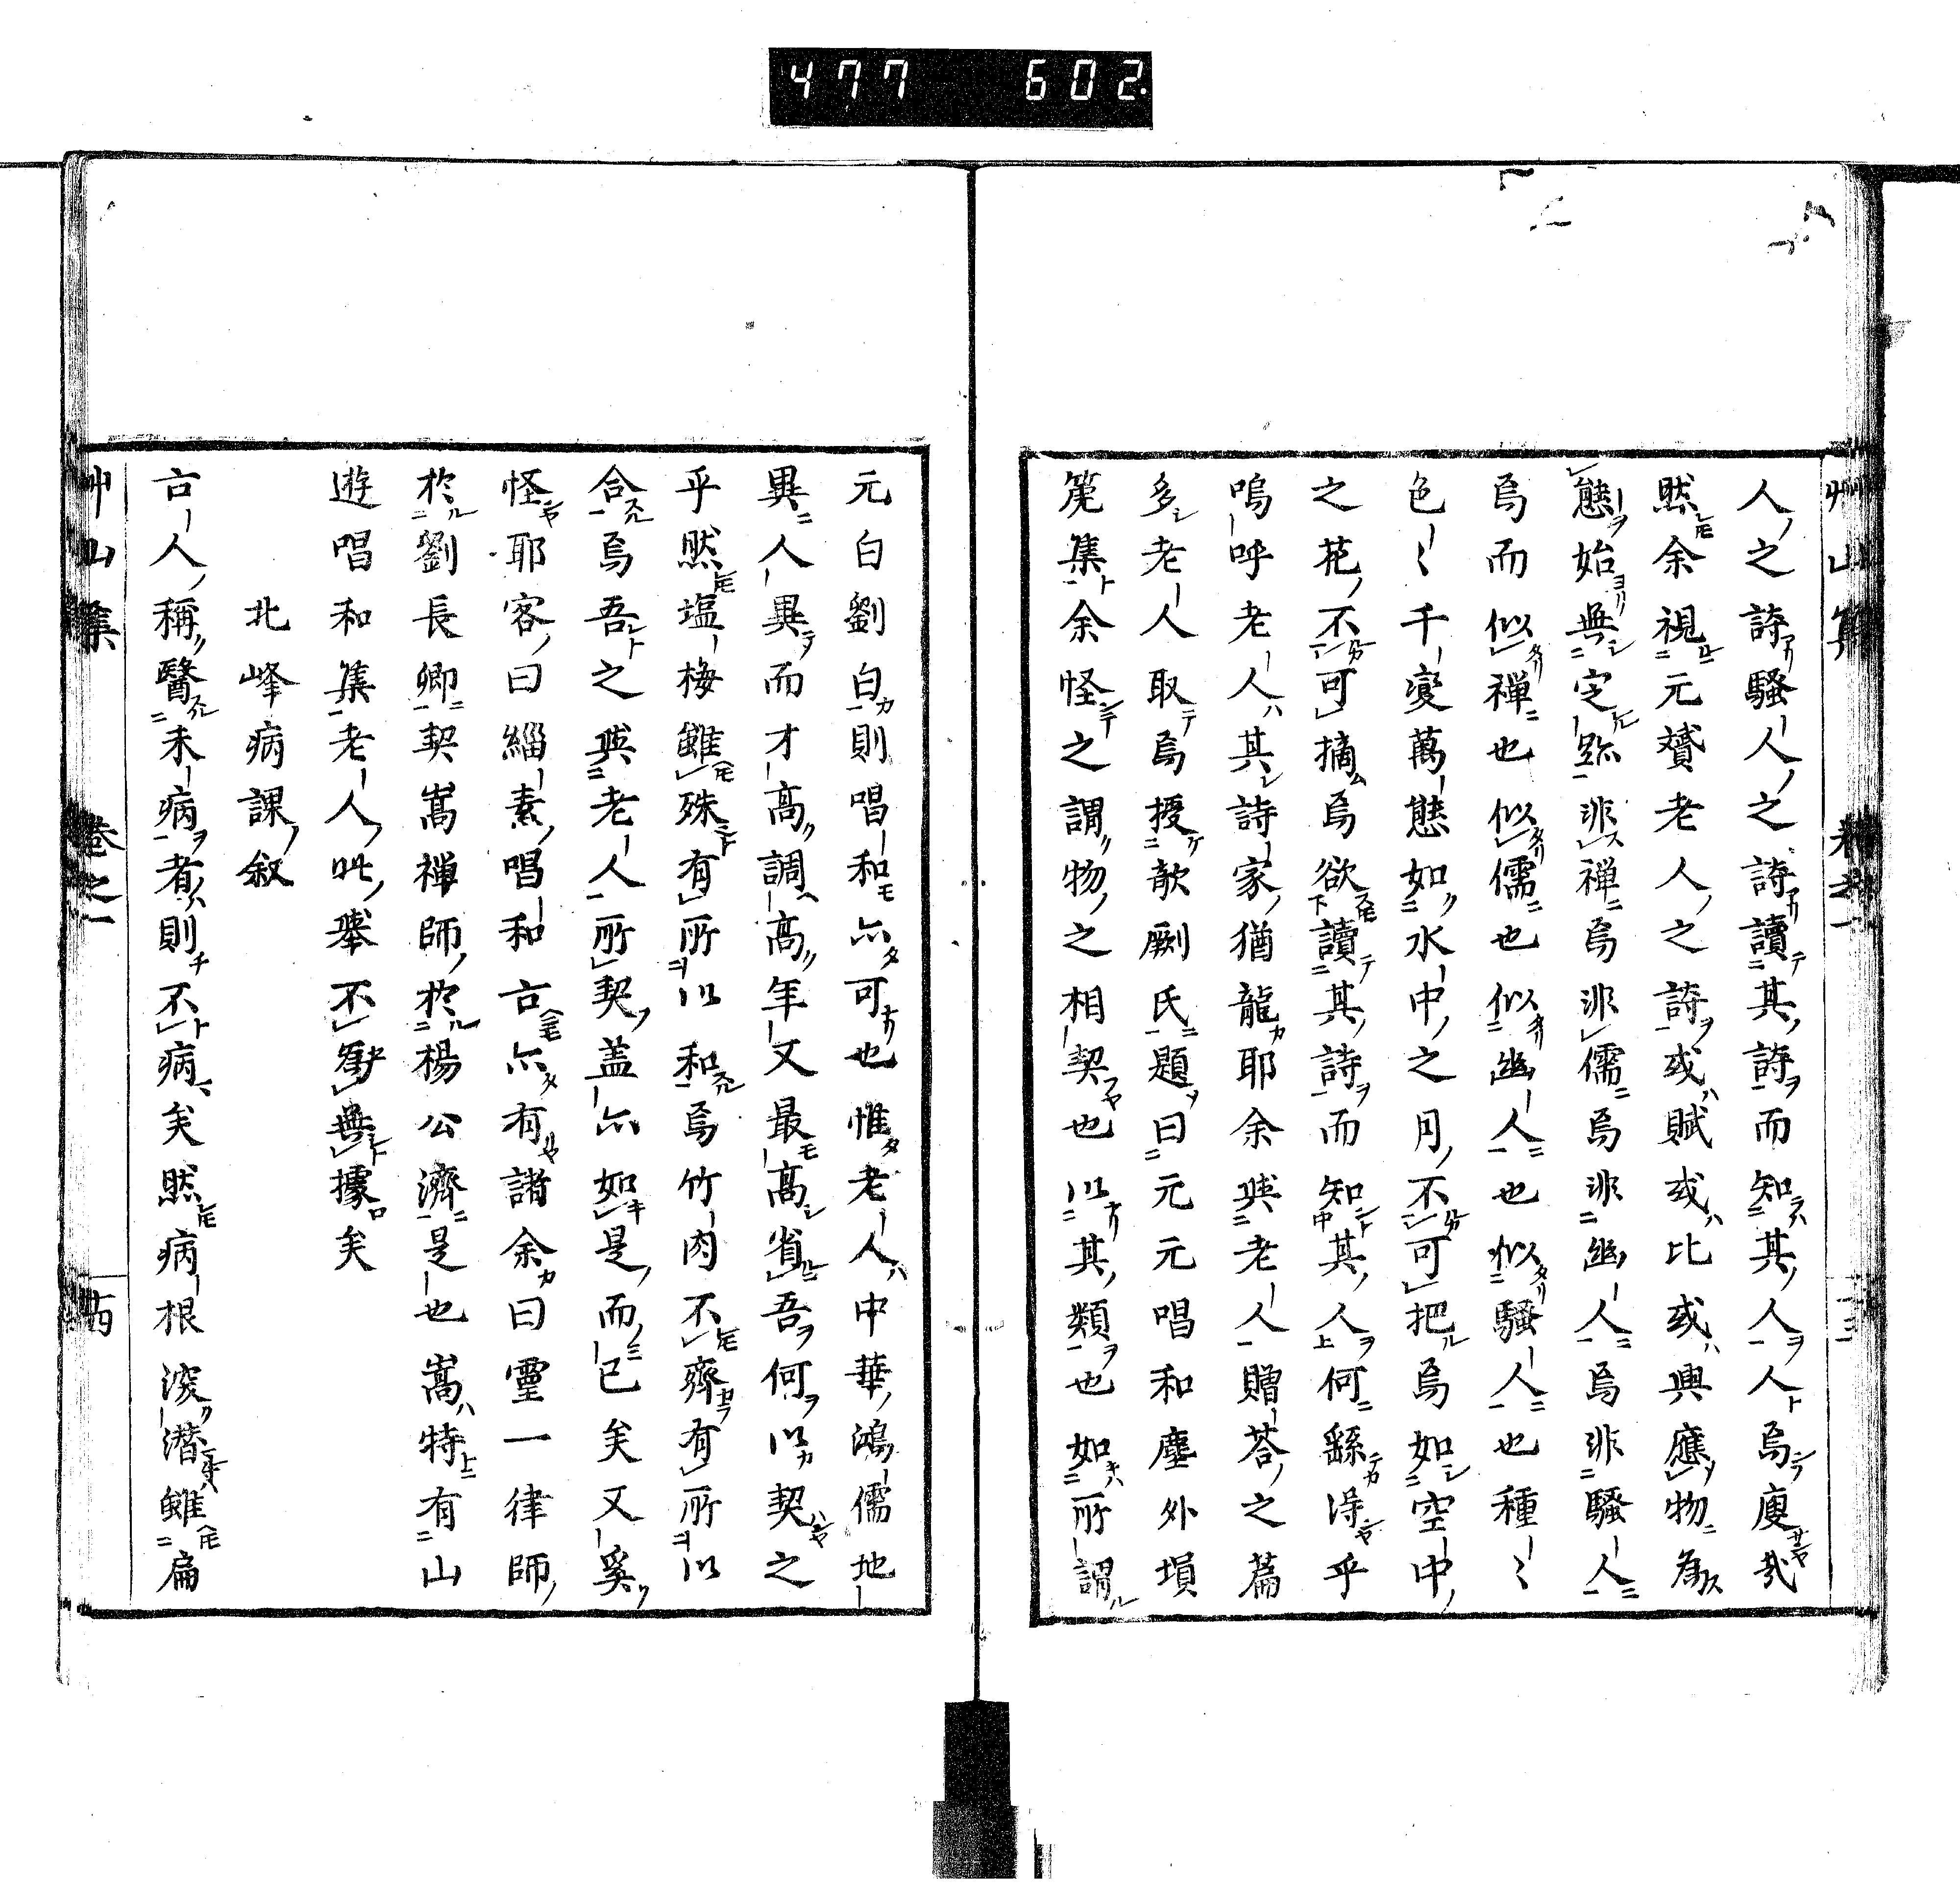 477 602
艸山集 卷之一 十三
人之詩騷人之詩讀其詩而知其人人焉廋哉
然余視元贇老人之詩或賦或比或興應物為
態始無定跡非禪焉非儒焉非幽人焉非騷人
焉而似禪也似儒也似幽人也似騷人也種〻
色〻千變萬態如水中之月不可把焉如空中
之花不可摘焉欲讀其詩而知其人何繇得乎
嗚呼老人其詩家猶龍耶余與老人贈荅之篇
多老人取焉授劂氏題曰元元唱和塵外塤
篪集余怪之謂物之相契也以其類也如所謂
元白劉白則唱和亦可也惟老人中華鴻儒地
異人異而才高調高年又最高省吾何以契之
乎然塩梅雖殊有所以和焉竹肉不齊有所以
合焉吾之與老人所契盖亦如是而已矣又奚
怪耶客曰緇素唱和古亦有諸余曰靈一律師
於劉長卿契嵩禪師於楊公濟是也嵩特有山
遊唱和集老人此舉不無據矣
北峰病課叙
古人稱醫未病者則不病矣然病根深潛雖扁
艸山集 卷之一 十四